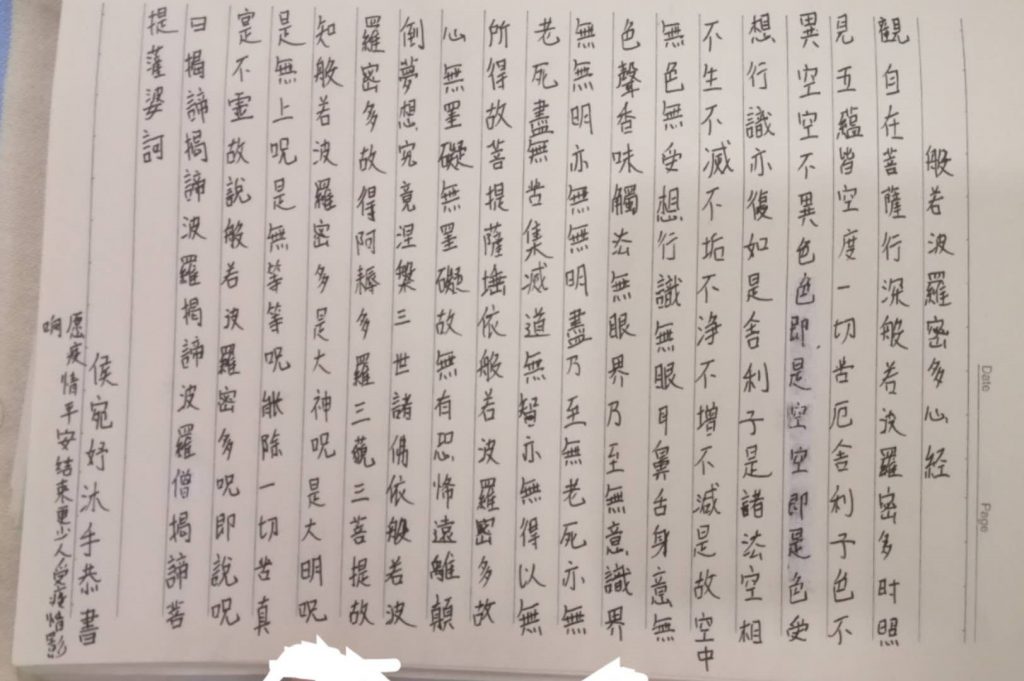 般若波羅密多心経
觀自在菩薩行深般若波羅密多时照
見五蘊皆空度一切苦厄舍利子色不
異空空不異色色即是空空即是色受
想行識亦復如是舍利子是諸法空相
不生不滅不垢不淨不增不減是故空中
無色無受想行識無眼耳鼻舌身意無
色聲香味觸法無眼界乃至無意識界
無無明亦無無明盡乃至無老死亦無
老死盡無苦集滅道無智亦無得以無
所得故菩提薩埵依般若波羅密多故
心無罣礙無罣礙故無有恐怖遠離顛
倒夢想究竟涅槃三世諸佛依般若波
羅密多故得阿耨多羅三藐三菩提故
知般若波羅密多是大神呪是大明呪
是無上呪是無等等呪能除一切苦真
寔不虛故說般若波羅密多呪即說呪
曰揭諦揭諦波羅揭諦波羅僧揭諦菩
提薩婆訶
侯宛妤沐手恭書
愿疫情平安結束更少人受疫情影
响
Date
Page